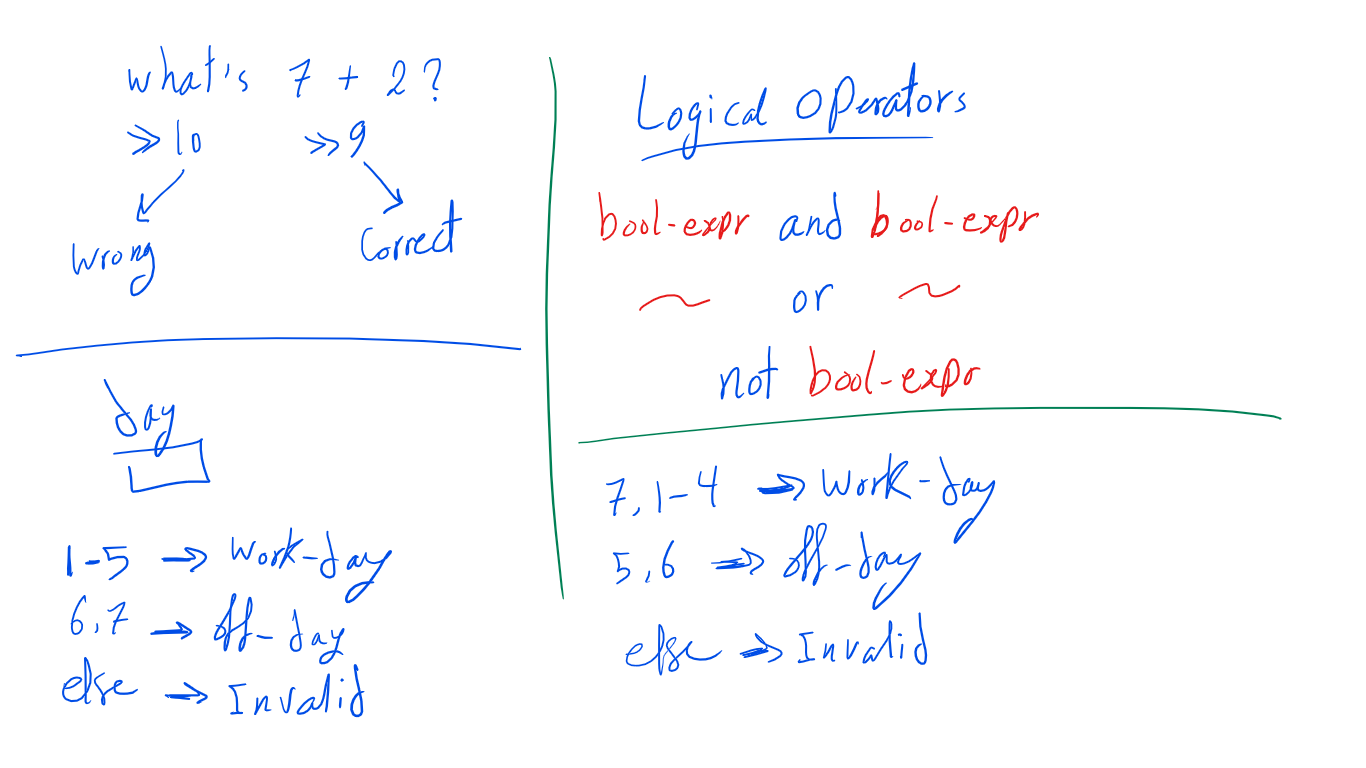 what's 7 + 2 ?
>> 10 >> 9
wrong correct
day
1-5 → work-day
6,7 → off-day
else → Invalid
Logical Operators
bool-expr and bool-expr
~ or ~
not bool-expr
7, 1-4 → work-day
5,6 → off-day
else → Invalid